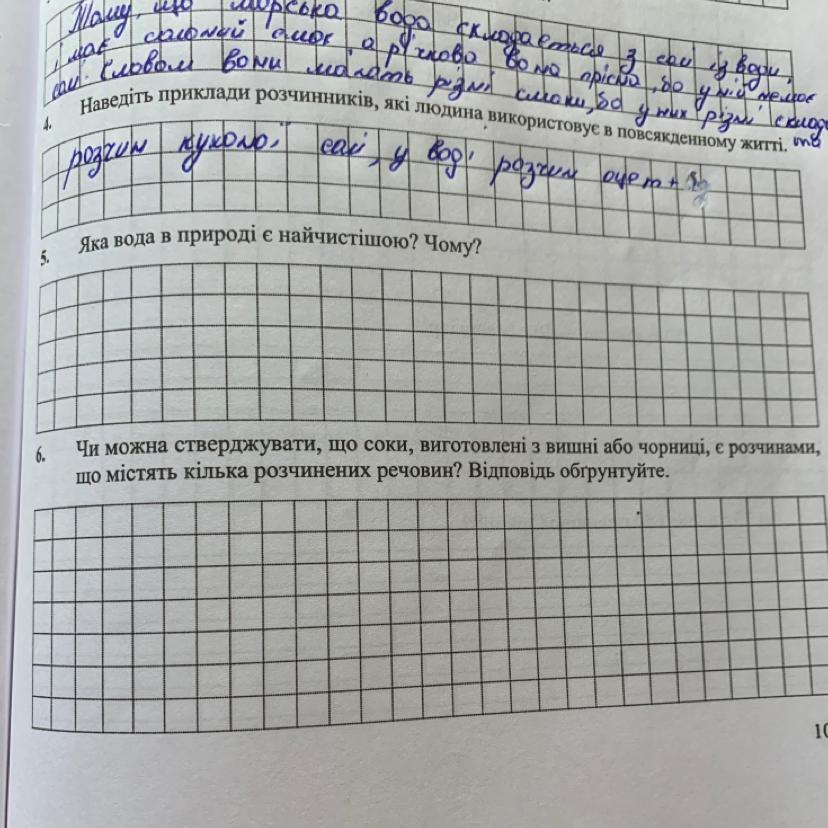 Тому, що морська вода складається з солі із води,
і має солоний смак, а річкова вона прісна, бо у ній немає
солі. Словом вони мають різні смаки, бо у них різні склад
тв
4. Наведіть приклади розчинників, які людина використовує в повсякденному житті.
розчин кухоної солі, у воді розчин оцет +
5. Яка вода в природі є найчистішою? Чому?
6. Чи можна стверджувати, що соки, виготовлені з вишні або чорниці, є розчинами,
що містять кілька розчинених речовин? Відповідь обґрунтуйте.
10